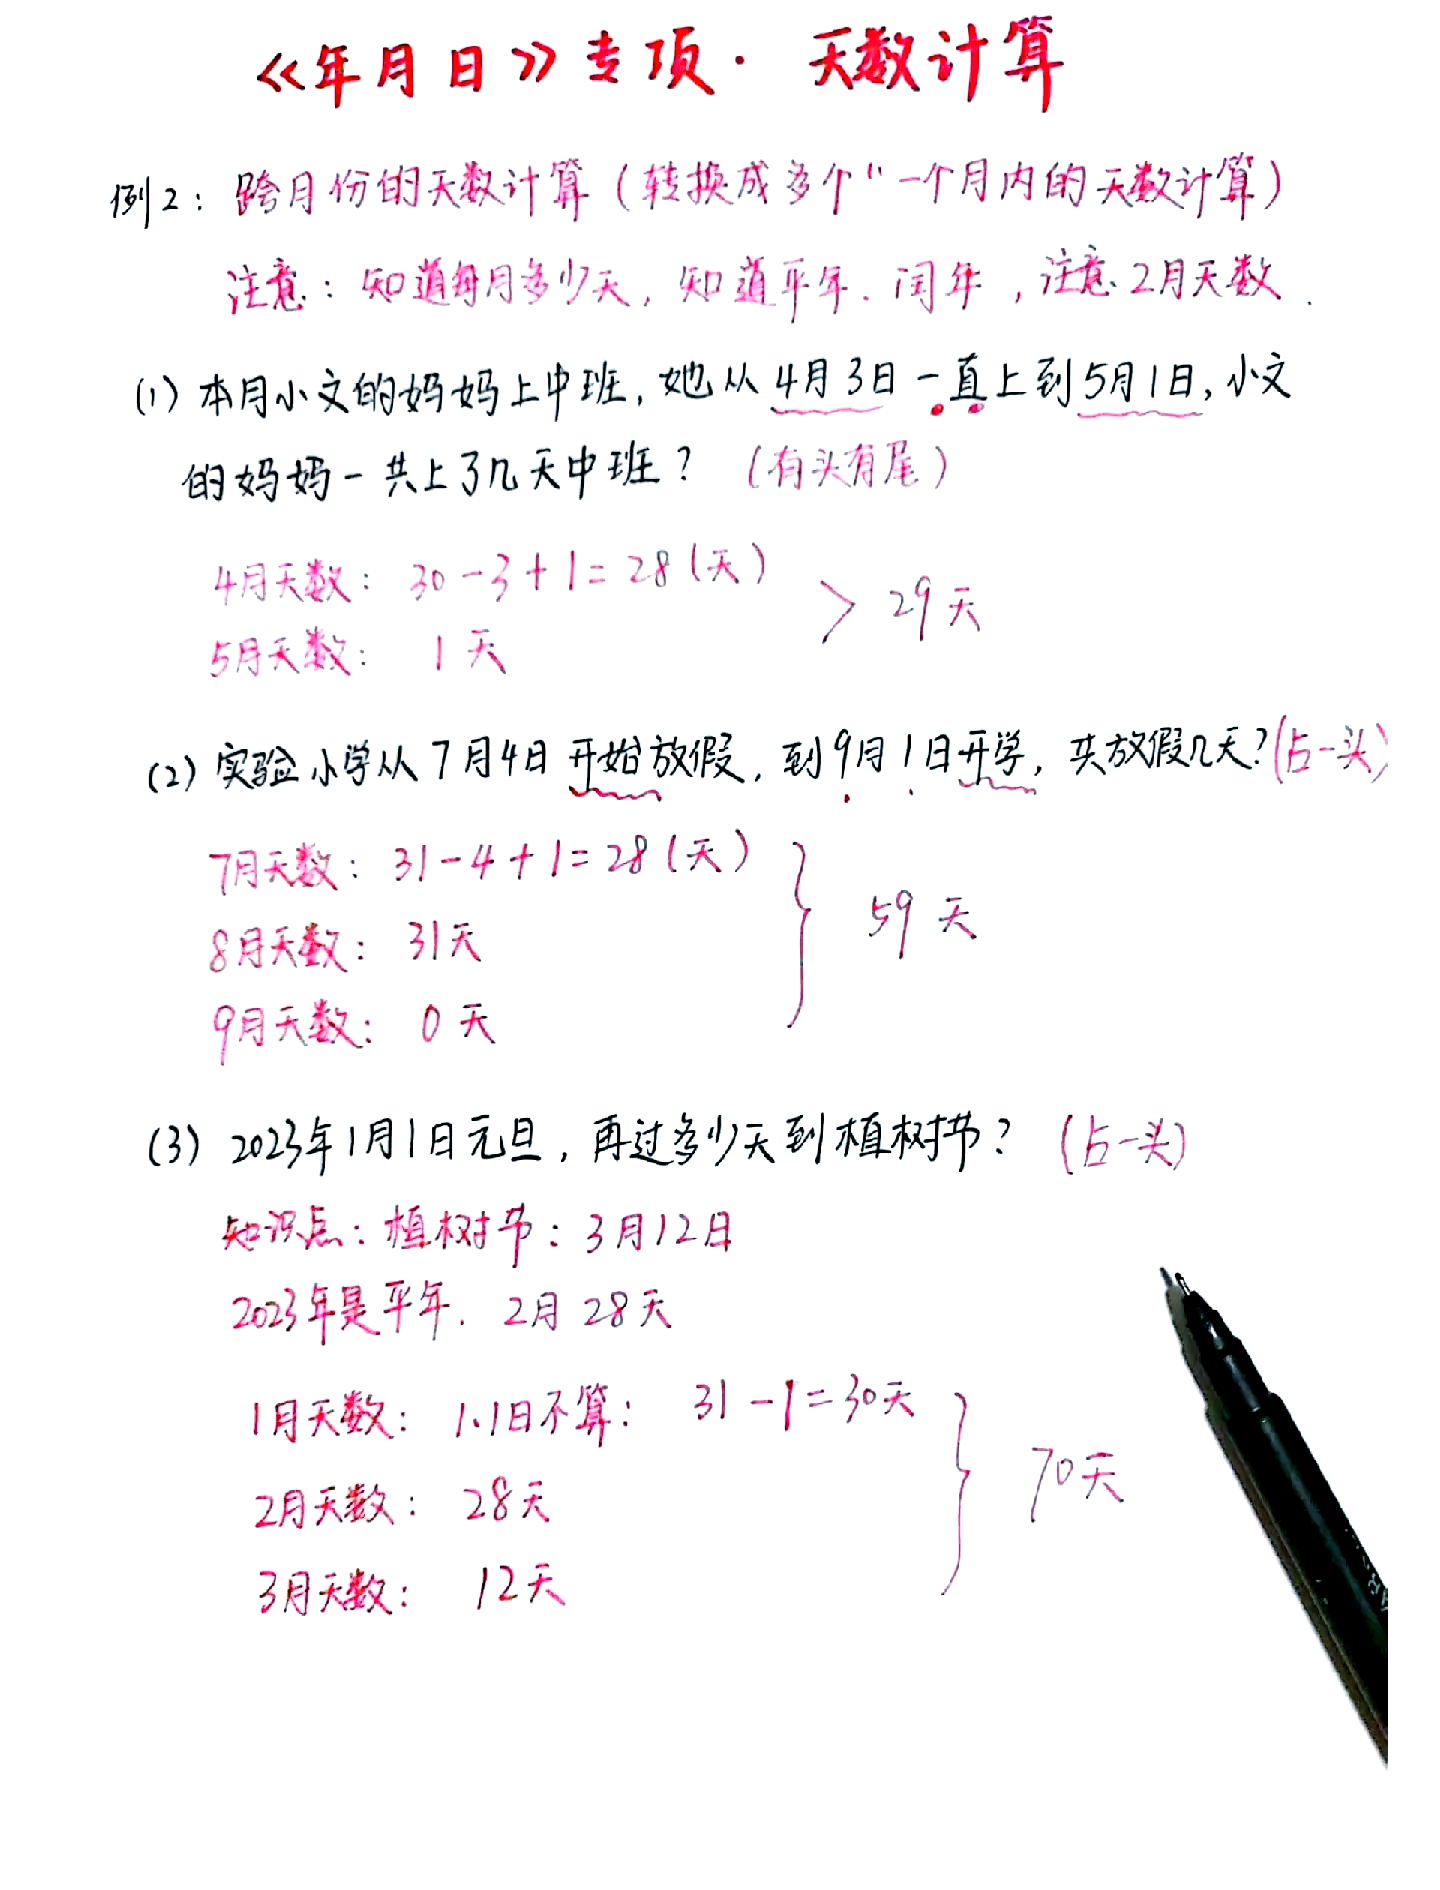 《年月日》专项·天数计算
例2：跨月份的天数计算（转换成多个“一个月内的天数计算）
注意：知道每月多少天，知道平年、闰年，注意2月天数.
(1) 本月小文的妈妈上中班，她从4月3日一直上到5月1日，小文
的妈妈一共上了几天中班？（有头有尾）
4月天数：30-3+1=28(天)
5月天数：1天
> 29天
(2) 实验小学从7月4日开始放假，到9月1日开学，共放假几天？(占一头)
7月天数：31-4+1=28(天)
8月天数：31天
9月天数：0天
} 59天
(3) 2023年1月1日元旦，再过多少天到植树节？(占一头)
知识点：植树节：3月12日
2023年是平年. 2月28天
1月天数：1.1日不算：31-1=30天
2月天数：28天
3月天数：12天
} 70天